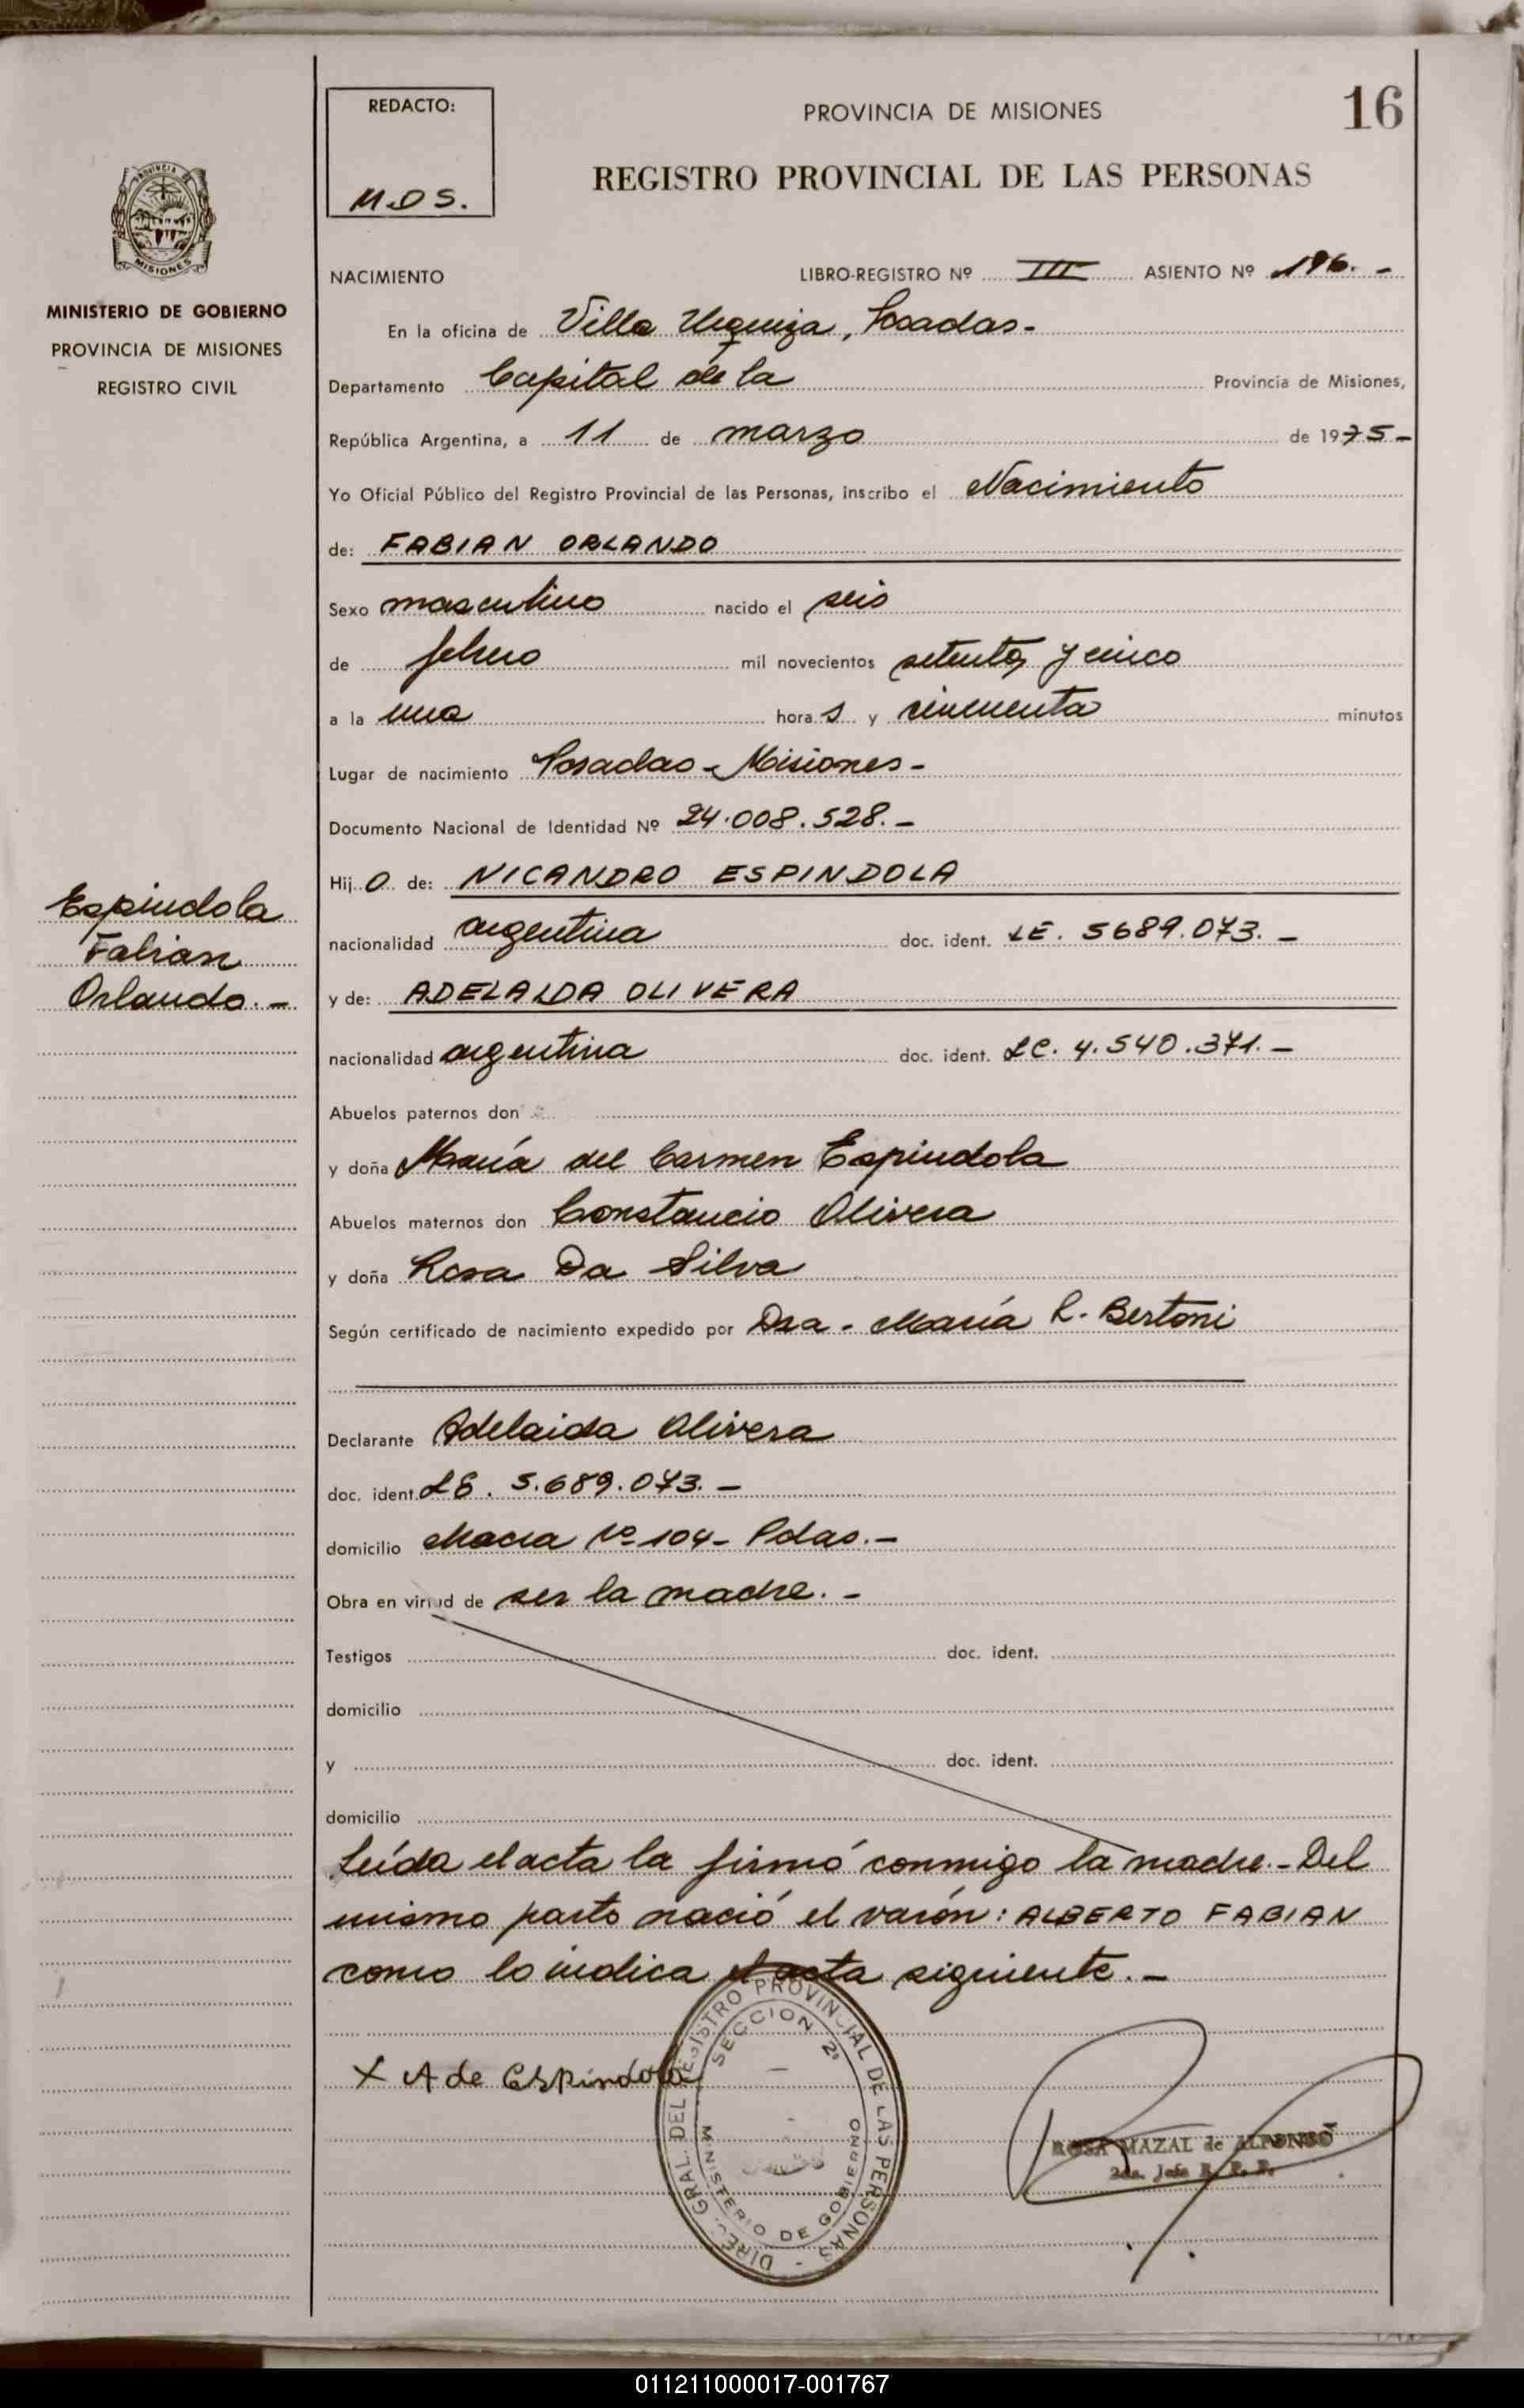 16
REDACTO:
M.D.S.
PROVINCIA DE MISIONES
REGISTRO PROVINCIAL DE LAS PERSONAS
PROVINCIA
MISIONES
MINISTERIO DE GOBIERNO
PROVINCIA DE MISIONES
REGISTRO CIVIL
NACIMIENTO LIBRO-REGISTRO Nº III ASIENTO Nº 196.-
En la oficina de Villa Urquiza, Posadas-
Departamento Capital de la Provincia de Misiones,
República Argentina, a 11 de marzo de 1975-
Yo Oficial Público del Registro Provincial de las Personas, inscribo el Nacimiento
de: FABIAN ORLANDO
Sexo masculino nacido el seis
de febrero mil novecientos setenta y cinco
a la una hora s y cincuenta minutos
Lugar de nacimiento Posadas-Misiones-
Documento Nacional de Identidad Nº 24.008.528.-
Hijo de: NICANDRO ESPINDOLA
Espindola
Fabian
Orlando.-
nacionalidad argentina doc. ident. LE. 5689.073.-
y de: ADELAIDA OLIVERA
nacionalidad argentina doc. ident. LC. 4.540.371.-
Abuelos paternos don
y doña María del Carmen Espindola
Abuelos maternos don Constancio Olivera
y doña Rosa Da Silva
Según certificado de nacimiento expedido por Dra. María R. Bertoni
Declarante Adelaida Olivera
doc. ident. LE. 5.689.073.-
domicilio Chacra Nº 104- Pdas.-
Obra en virtud de ser la madre.-
Testigos doc. ident.
domicilio
y doc. ident.
domicilio
Leída el acta la firmó conmigo la madre.-Del
mismo parto nació el varón: ALBERTO FABIAN
como lo indica el acta siguiente.-
X A de Espíndola
DIREC. GRAL. DEL REGISTRO PROVINCIAL DE LAS PERSONAS -
SECCION 2ª
MINISTERIO DE GOBIERNO
ROSA MAZAL de ALFONSO
2da. Jefe R. P. P.
011211000017-001767